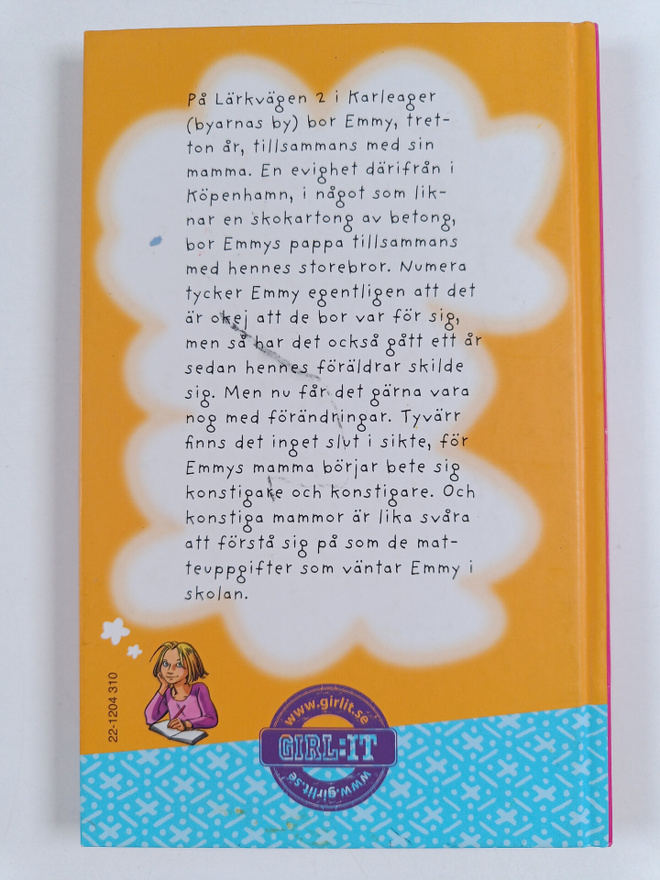 På Lärkvägen 2 i Karleager
(byarnas by) bor Emmy, tret-
ton år, tillsammans med sin
mamma. En evighet därifrån i
Köpenhamn, i något som lik-
nar en skokartong av betong,
bor Emmys pappa tillsammans
med hennes storebror. Numera
tycker Emmy egentligen att det
är okej att de bor var för sig,
men så har det också gått ett år
sedan hennes föräldrar skilde
sig. Men nu får det gärna vara
nog med förändringar. Tyvärr
finns det inget slut i sikte, för
Emmys mamma börjar bete sig
konstigare och konstigare. Och
konstiga mammor är lika svåra
att förstå sig på som de mat-
teuppgifter som väntar Emmy i
skolan.
22-1204 310
www.girlit.se
GIRL:IT
www.girlit.se